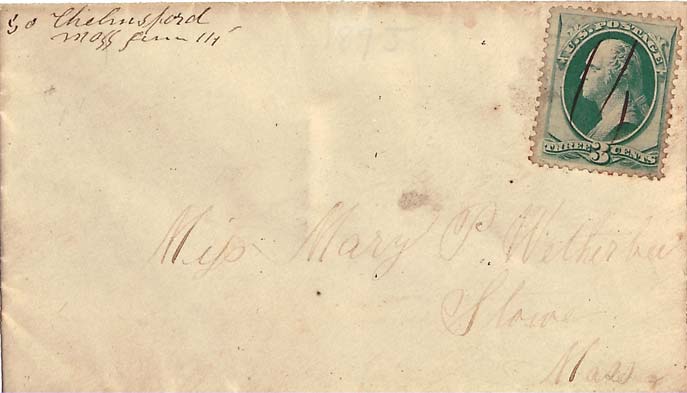 So Chelmsford
Mass June 14
U.S. POSTAGE
THREE 3 CENTS
Miss Mary P. Wetherbee
Stow
Mass